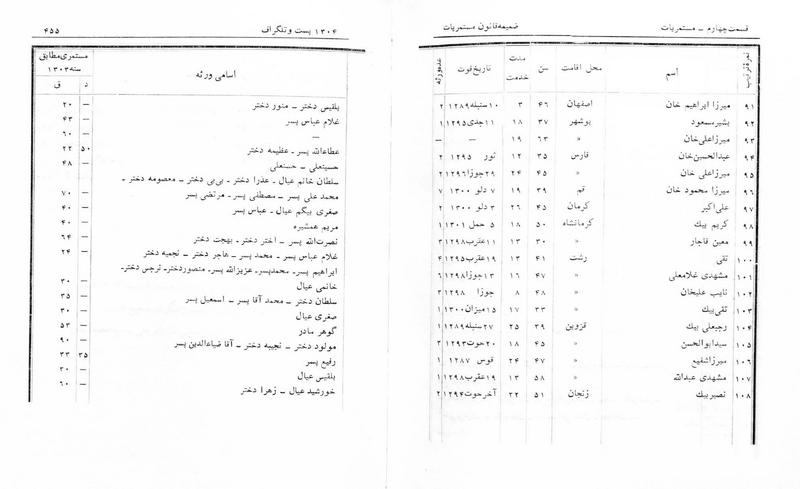 قسمت چهارم ــ مستمریات
ضمیمه قانون مستمریات
نمره ترتیب اسم محل اقامت سن مدت خدمت تاریخ فوت عده ورثه
۹۱ میرزا ابراهیم خان اصفهان ۴۶ ۳ ۱۰ سنبله ۱۲۸۹ ۲
۹۲ بشیر مسعود بوشهر ۳۷ ۱۸ ۱۱ جدی ۱۲۹۵ ۱
۹۳ میرزا علی خان » ۶۳ ۱۹ — —
۹۴ عبدالحسین خان فارس ۳۵ ۱۲ ثور ۱۲۹۵ ۲
۹۵ میرزا علی خان » ۴۵ ۲۴ ۲۹ جوزا ۱۲۹۶ ۲
۹۶ میرزا محمود خان قم ۳۹ ۱۹ ۷ دلو ۱۳۰۰ ۷
۹۷ علی اکبر کرمان ۴۵ ۲۶ ۳ دلو ۱۳۰۰ ۲
۹۸ کریم بیک کرمانشاه ۵۰ ۱۸ ۵ حمل ۱۳۰۱ ۱
۹۹ معین قاجار » ۳۰ ۱۳ ۱۱ عقرب ۱۲۹۸ ۳
۱۰۰ تقی رشت ۴۱ ۱۳ ۱۹ عقرب ۱۲۹۵ ۴
۱۰۱ مشهدی غلامعلی » ۴۷ ۱۶ ۱۳ جوزا ۱۲۹۸ ۶
۱۰۲ نایب علیخان » ۴۸ ۸ جوزا ۱۲۹۸ ۳
۱۰۳ تقی بیک » ۳۳ ۱۷ ۱۵ میزان ۱۳۰۰ ۱
۱۰۴ رجبعلی بیک قزوین ۳۹ ۲۵ ۲۷ سنبله ۱۲۸۹ ۱
۱۰۵ سید ابوالحسن » ۴۵ ۱۸ ۲۰ حوت ۱۲۹۳ ۳
۱۰۶ میرزا شفیع » ۴۷ ۲۴ قوس ۱۲۸۷ ۱
۱۰۷ مشهدی عبدالله » ۵۸ ۱۳ ۱۹ عقرب ۱۲۹۸ ۱
۱۰۸ نصیر بیک زنجان ۵۱ ۲۲ آخر حوت ۱۲۹۴ ۲
۱۳۰۴ پست و تلگراف
۴۵۵
اسامی ورثه
مستمری مطابق
سنه ۱۳۰۳
ق د
بلقیس دختر ــ منور دختر — ۲۰
غلام عباس پسر — ۴۳
— — ۶۰
عطاءالله پسر ــ عظیمه دختر ۵۰ ۲۲
حسینعلی ــ حسنعلی — ۴۸
سلطان خانم عیال ــ عذرا دختر ــ بی بی دختر ــ معصومه دختر ــ
محمد علی پسر ــ مصطفی پسر ــ مرتضی پسر — ۷۰
صغری بیگم عیال ــ عباس پسر — ۴۰
مریم همشیره — ۴۰
نصرت‌الله پسر ــ اختر دختر ــ بهجت دختر — ۶۴
غلام عباس پسر ــ محمد پسر ــ هاجر دختر ــ نجمیه دختر — ۲۴
ابراهیم پسر ــ محمد پسر ــ عزیزالله پسر ــ منصور دختر ــ نرجس دختر ــ
خانمی عیال — ۳۰
سلطان دختر ــ محمد آقا پسر ــ اسمعیل پسر — ۳۵
صغری عیال — ۳۰
گوهر مادر — ۵۳
مولود دختر ــ نجیبه دختر ــ آقا ضیاءالدین پسر — ۹۰
رفیع پسر ۳۵ ۳۳
بلقیس عیال — ۳۰
خورشید عیال ــ زهرا دختر — ۶۰